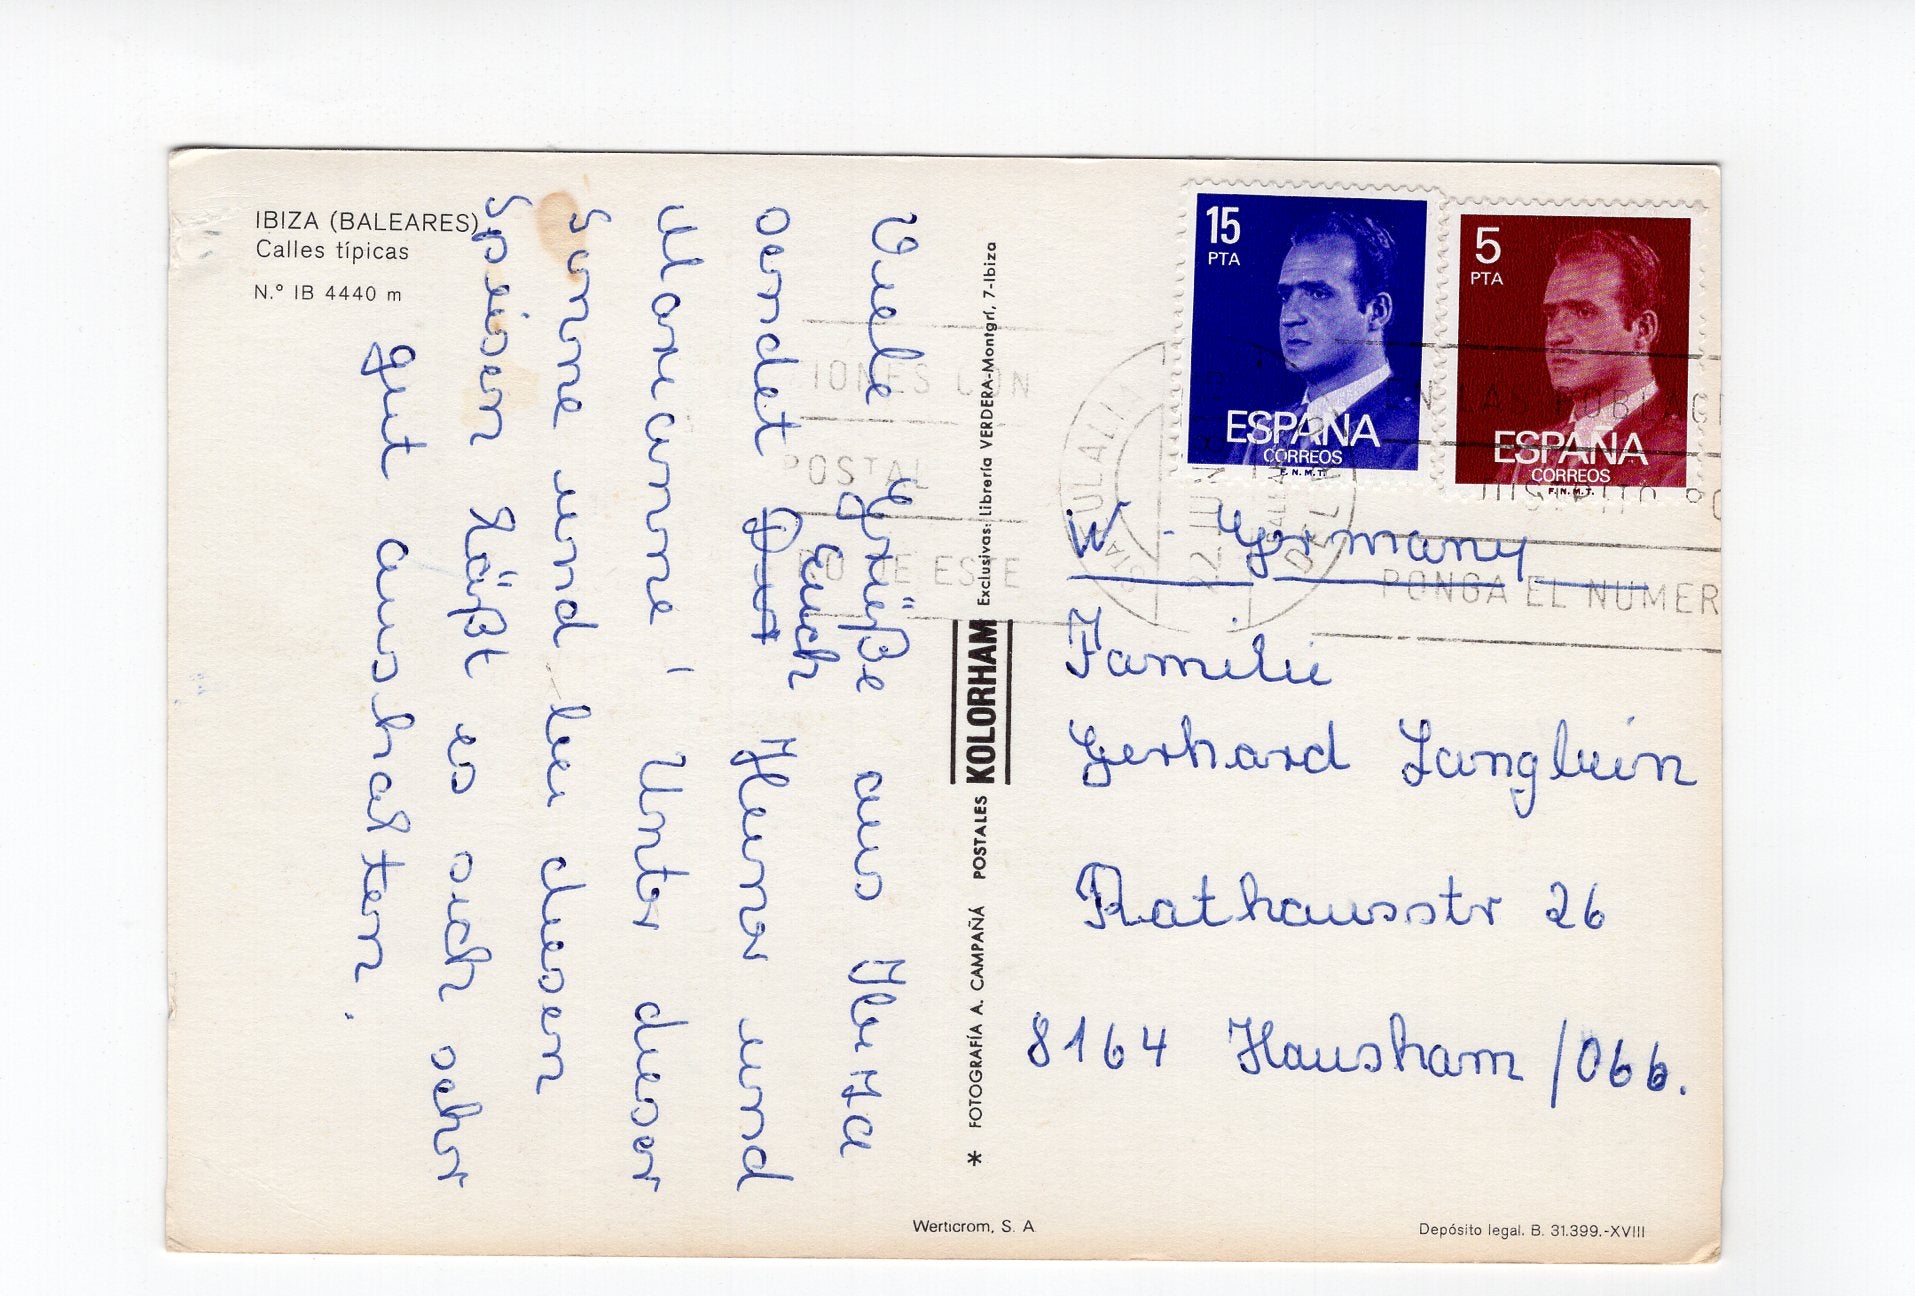 IBIZA (BALEARES)
Calles típicas
N.° IB 4440 m
Viele Grüße aus Ibiza
sendet Dir Euch Heiner und
Marianne! Unter dieser
Sonne und bei diesen
Speisen läßt es sich sehr
gut aushalten.
* FOTOGRAFÍA A. CAMPAÑÁ POSTALES KOLORHAM Exclusivas: Librería VERDERA-Montgrí, 7-Ibiza
15
PTA
ESPAÑA
CORREOS
F.N.M.T.
5
PTA
ESPAÑA
CORREOS
F.N.M.T.
IONES CON
POSTAL
DE ESTE
EULALIA
22 JUN
BALEA
DEL
EN LAS POBLACI
PONGA EL NUMER
W.-Germany
Familie
Gerhard Langlein
Rathausstr 26
8164 Hausham /Obb.
Werticrom, S. A.
Depósito legal. B. 31.399.-XVIII